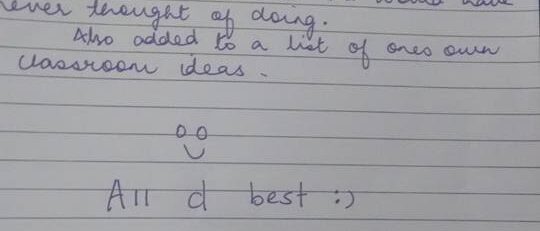 never thought of doing.
Also added to a list of ones own
classroom ideas.
All d best :)